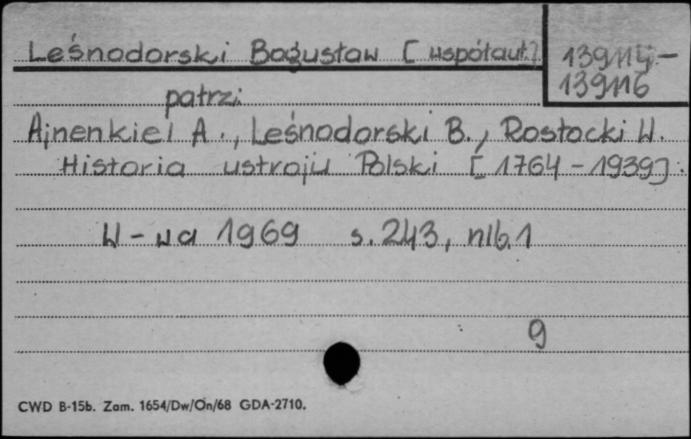 Leśnodorski Bogusław [współaut.]
139114-
139116
patrz:
Ajnenkiel A., Leśnodorski B., Rostocki W.
Historia ustroju Polski [1764-1939].
W-wa 1969 s. 243, nlb. 1
9
CWD B-15b. Zam. 1654/Dw/On/68 GDA-2710.